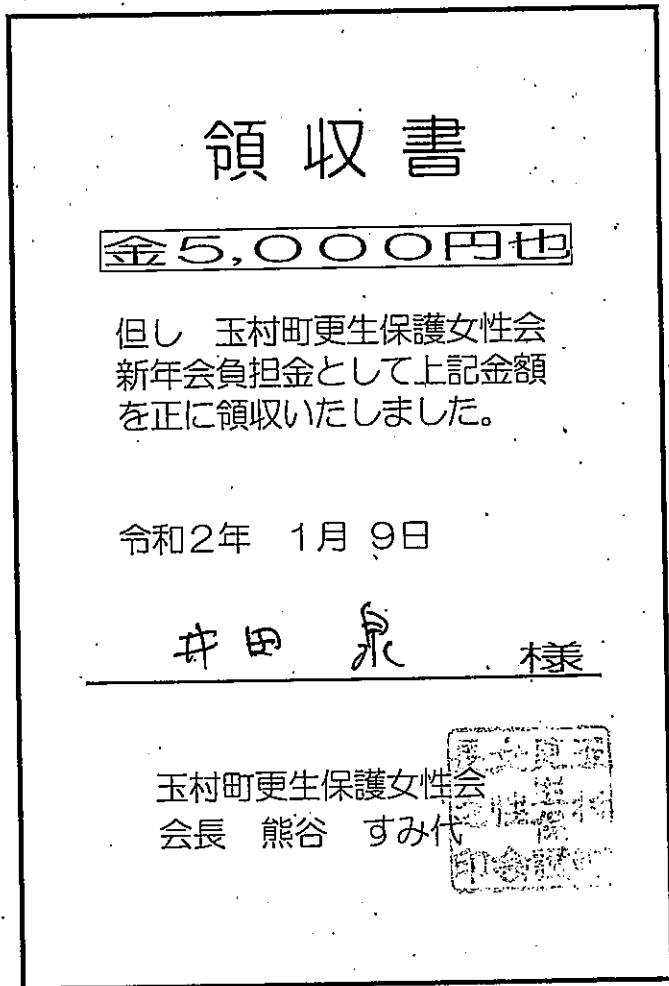 領収書
金5,000円也
但し 玉村町更生保護女性会
新年会負担金として上記金額
を正に領収いたしました。
令和2年 1月 9日
井田 泉 様
玉村町更生保護女性会
会長 熊谷 すみ代